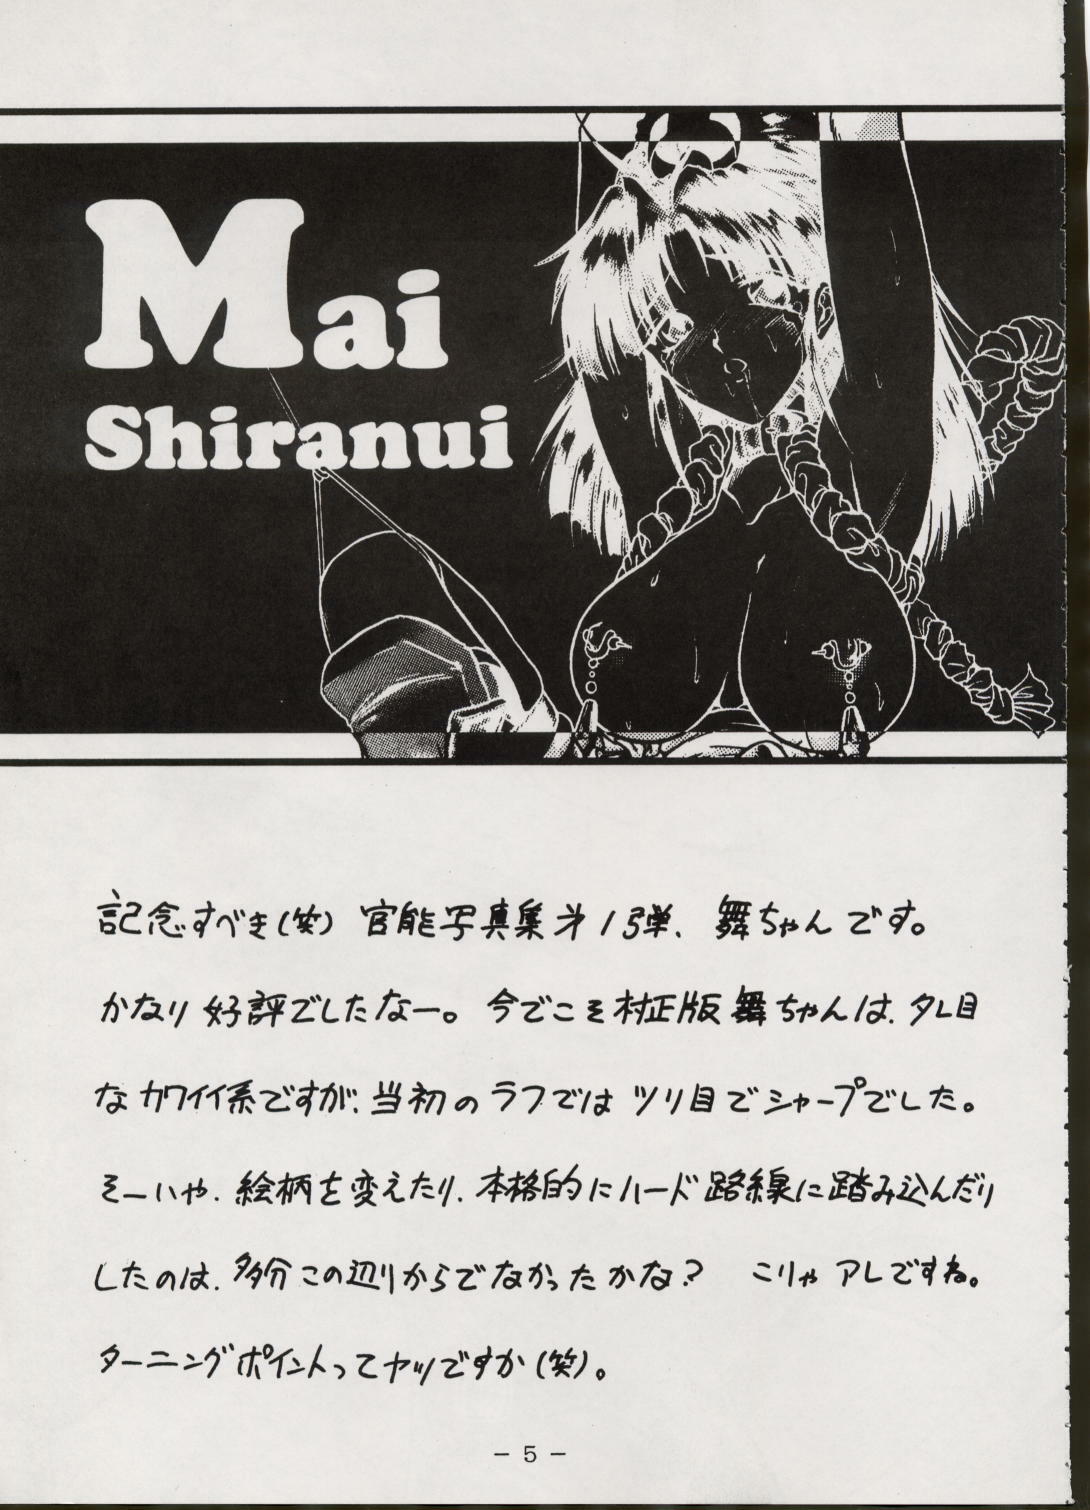 Mai
Shiranui
記念すべき(笑) 官能写真集㐧1弾、舞ちゃんです。
かなり好評でしたなー。今でこそ村正版舞ちゃんは、タレ目
なカワイイ系ですが、当初のラフではツリ目でシャープでした。
そーいや、絵柄を変えたり、本格的にハード路線に踏み込んだり
したのは、多分この辺りからでなかったかな? こりゃアレですね。
ターニングポイントってヤツですか(笑)。
- 5 -